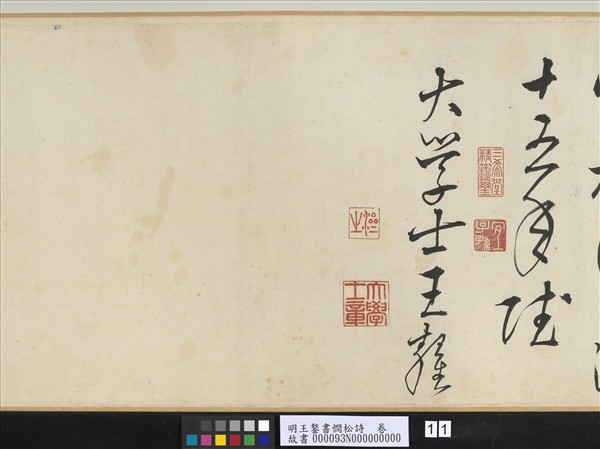 十五年
大學士王鏊
三希堂精鑑璽
宜子孫
濟之
大學士章
明王鏊書憫松詩　卷
故書 000093N000000000
1 1